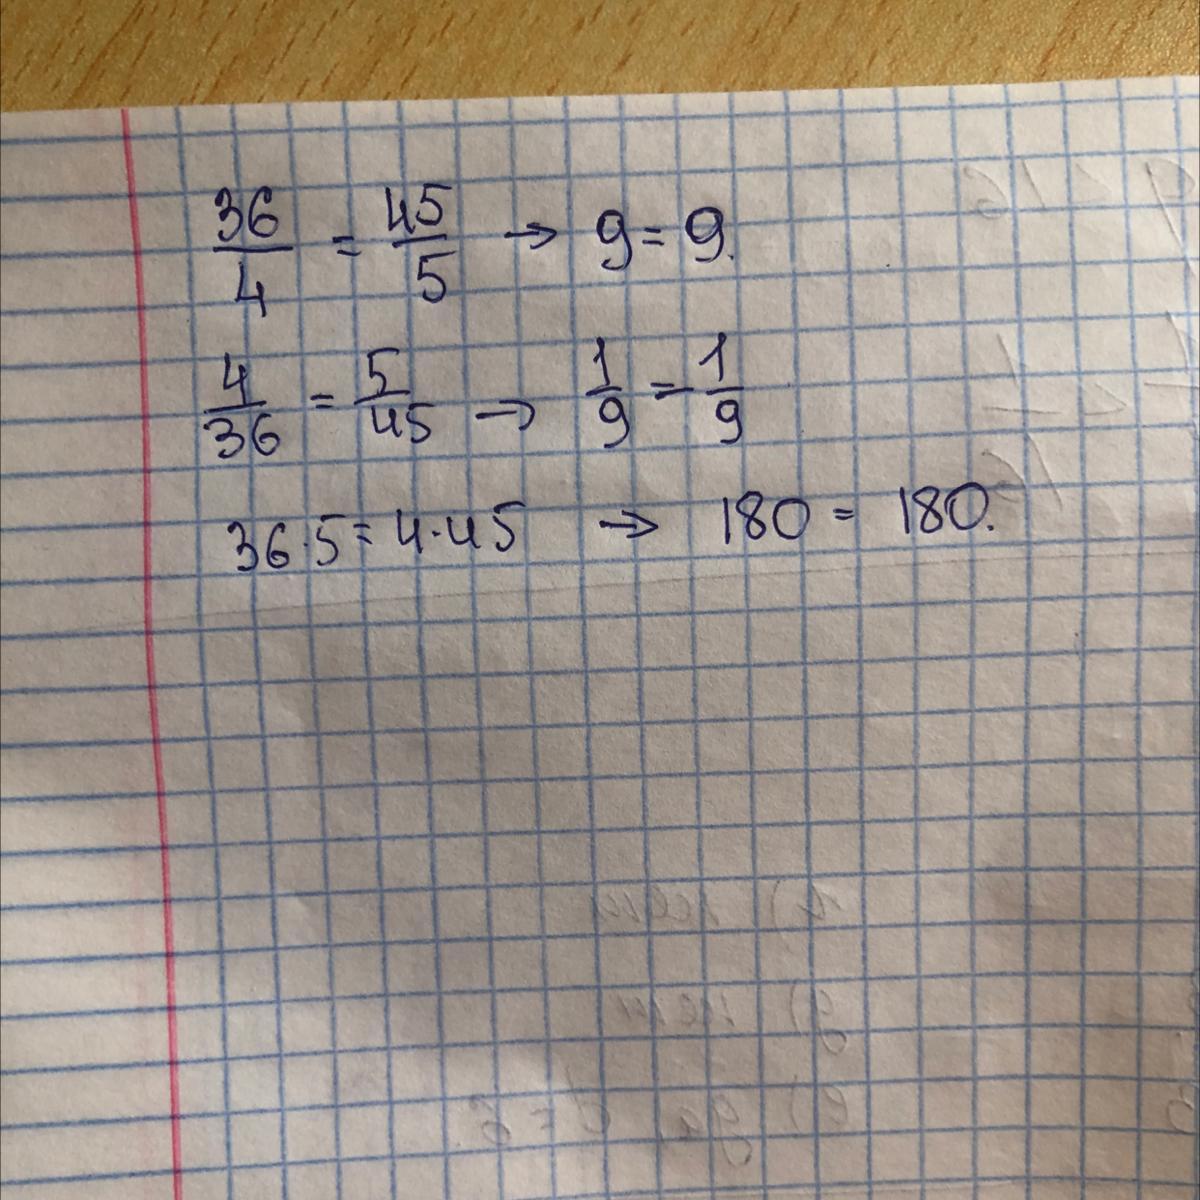 36/4 = 45/5 → 9 = 9.
4/36 = 5/45 → 1/9 = 1/9
36·5 = 4·45 → 180 = 180.